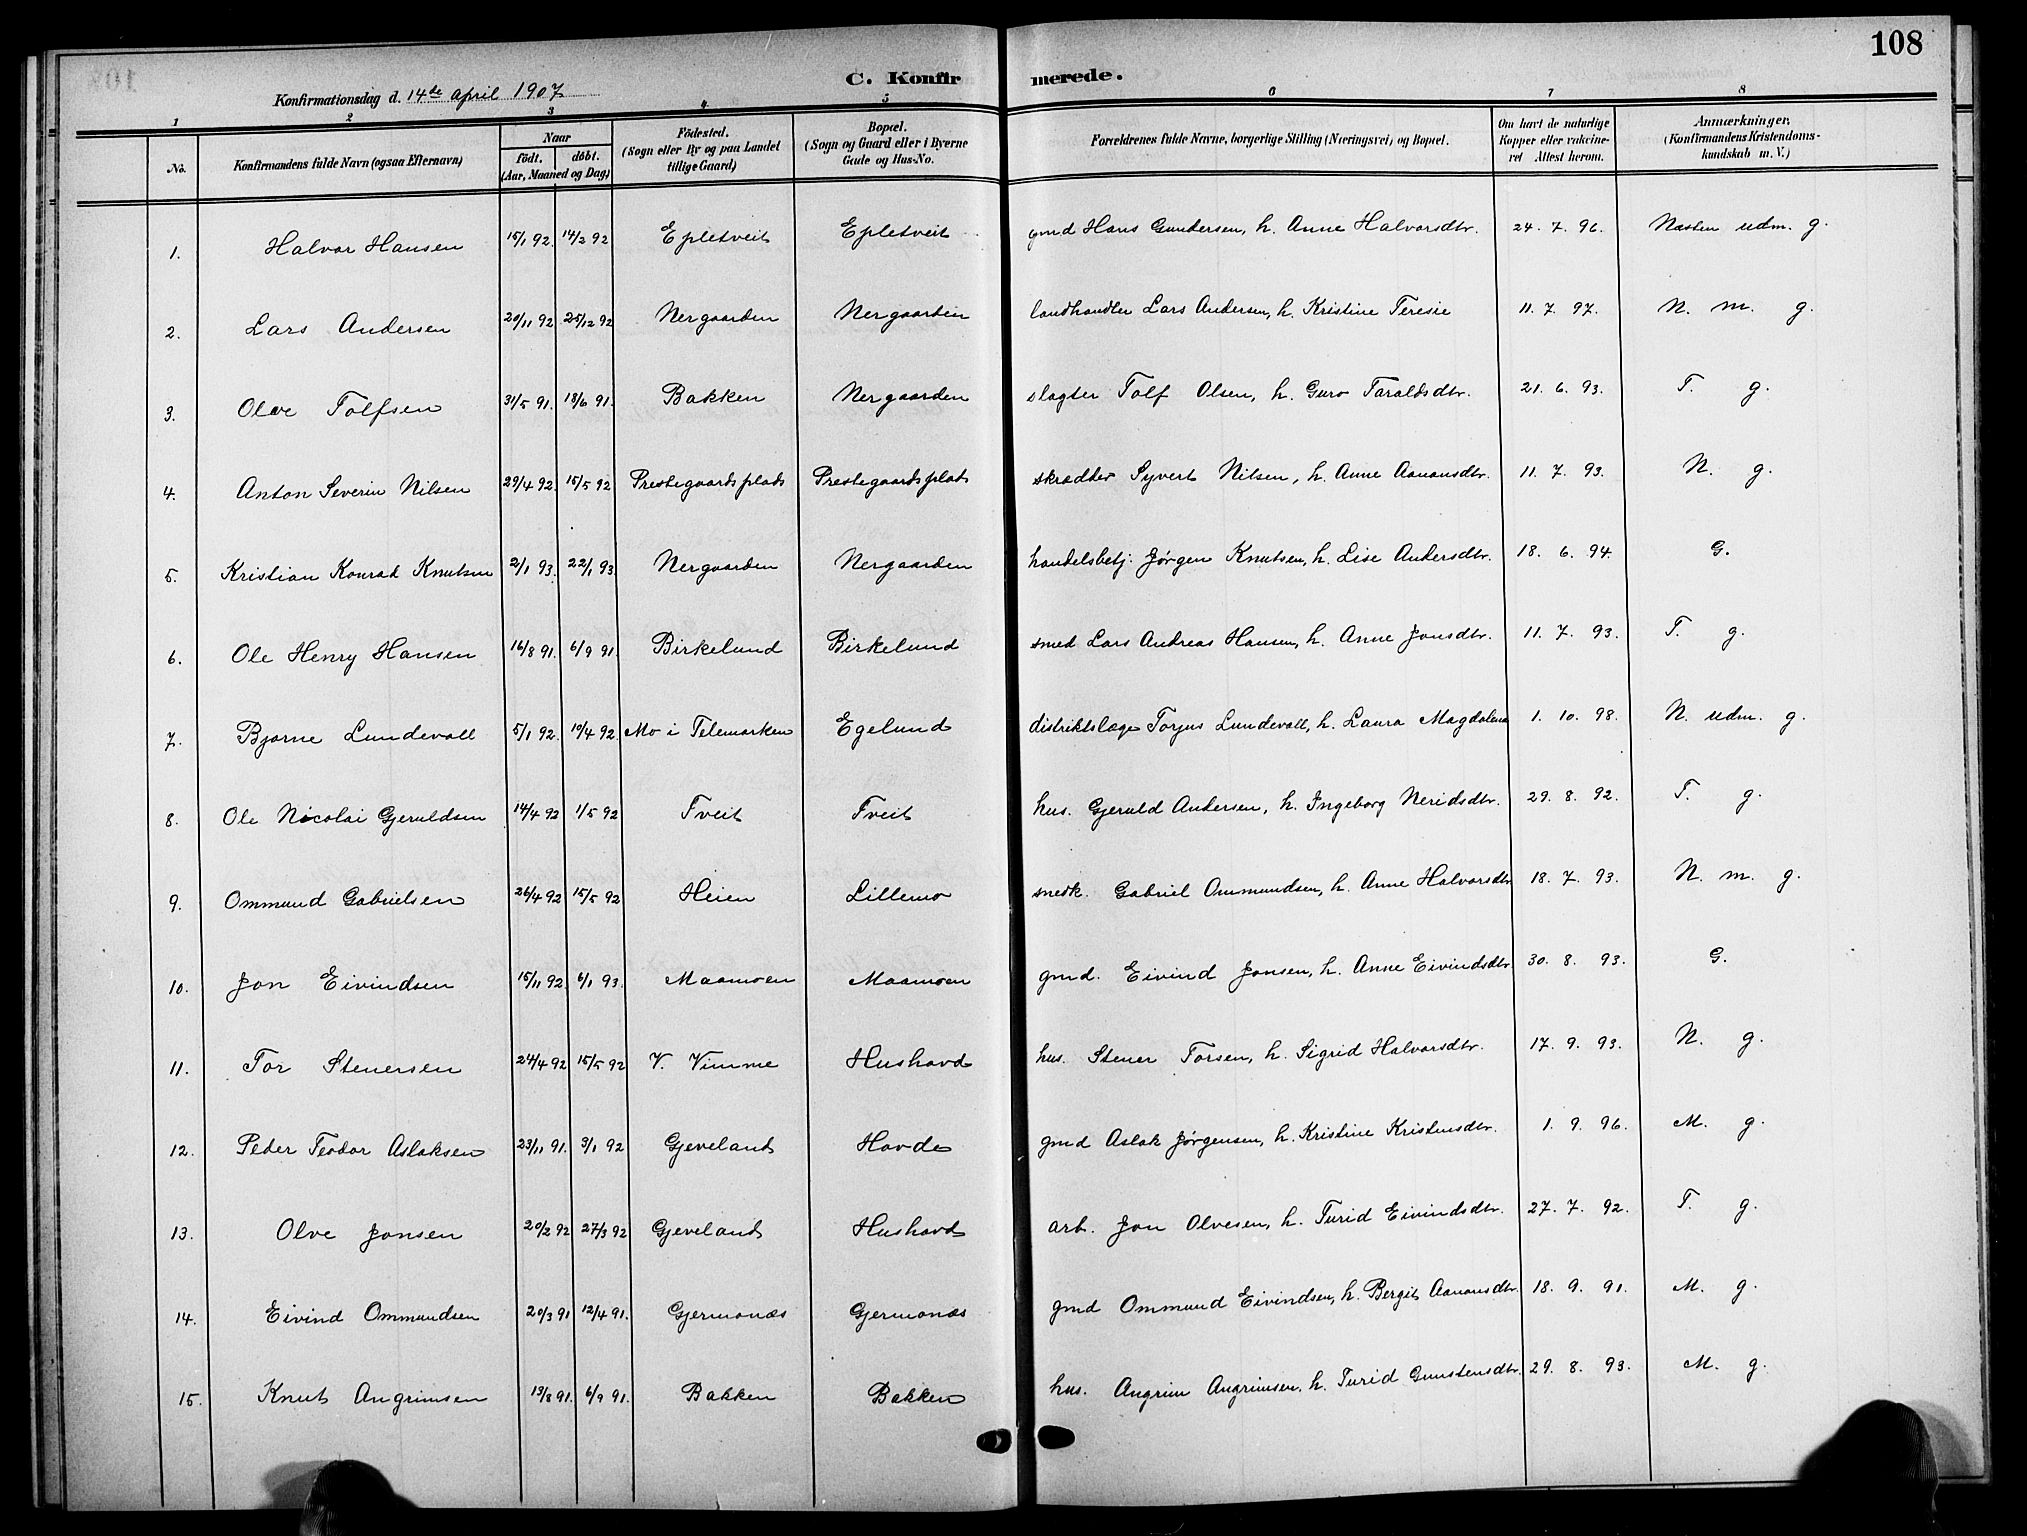 108
C. Konfirmerede.
Konfirmationsdag d. 14de April 1907
1 2 3 4 5 6 7 8
No. | Konfirmandens fulde Navn (ogsaa Efternavn) | Naar født. døbt. (Aar, Maaned og Dag) | Födested. (Sogn eller By og paa Landet tillige Gaard) | Bopæl. (Sogn og Gaard eller i Byerne Gade og Hus-No. | Forældrenes fulde Navne, borgerlige Stilling (Næringsvei) og Bopæl. | Om havt de naturlige Kopper eller vakcineret Attest herom. | Anmærkninger. (Konfirmandens Kristendomskundskab m. V.)
1. Halvor Hansen 15/1 92. 14/2 92 Epletveit Epletveit gmd Hans Gundersen, h. Anne Halvorsdtr. 24. 7. 96. Næsten udm. g.
2. Lars Andersen 20/11 92 25/12 92 Nergaarden Nergaarden landhandler Lars Andersen, h. Kristine Teresie 11. 7. 97. N. m. g.
3. Olve Tolfsen 31/5 91. 18/6 91. Bakken Nergaarden slagter Tolf Olsen, h. Guro Taraldsdtr. 21. 6. 93. T. g.
4. Anton Severin Nilsen 29/4 92. 15/5 92 Prestegaards plads Prestegaards plads skrædder Syvert Nilsen, h. Anne Aanonsdtr. 11. 7. 93. N. g.
5. Kristian Konrad Knutsen 2/1 93. 22/1 93. Nergaarden Nergaarden handelsbetj. Jørgen Knutsen, h. Lise Andersdtr. 18. 6. 94. G.
6. Ole Henry Hansen 16/8 91. 6/9 91. Birkelund Birkelund smed Lars Andreas Hansen, h. Anne Jonsdtr. 11. 7. 93. T. g.
7. Bjarne Lundevall 5/1 92. 10/4 92. Mo i Telemarken Egelund distriktslæge Torjus Lundevall, h. Laura Magdalena 1. 10. 98. N. udm. g.
8. Ole Nicolai Gjeruldsen 14/4 92 1/5 92 Tveit Tveit hus. Gjeruld Andersen, h. Ingeborg Neridsdtr. 29. 8. 92. T. g.
9. Ommund Gabrielsen 26/4 92 15/5 92 Heien Lillemo snedk. Gabriel Ommundsen, h. Anne Halvorsdtr 18. 7. 93. N. m. g.
10. Jon Eivindsen 15/11 92. 6/1 93. Maamoen Maamoen gmd. Eivind Jonsen, h. Anne Eivindsdtr 30. 8. 93. G.
11. Tor Stenersen 24/4 92 15/5 92 V. Vimme Hushovd hus. Stener Torsen, h. Sigrid Halvorsdtr. 17. 9. 93. N. g.
12. Peder Teodor Aslaksen 23/11 91. 3/1 92 Gjeveland Hovde gmd Aslak Jørgensen, h. Kristine Kristensdtr. 1. 9. 96. M. g.
13. Olve Jonsen 20/2 92 27/3 92 Gjeveland Hushovd arb. Jon Olvesen, h. Turid Eivindsdtr. 27. 7. 92. T. g.
14. Eivind Ommundsen 20/3 91 12/4 91. Gjermonæs Gjermonæs gmd Ommund Eivindsen, h. Bergit Aanonsdtr. 18. 9. 91. M. g.
15. Knut Angrimsen 13/8 91. 6/9 91. Bakken Bakken hus. Angrim Angrimsen, h. Turid Gunstensdtr. 29. 8. 93. M. g.